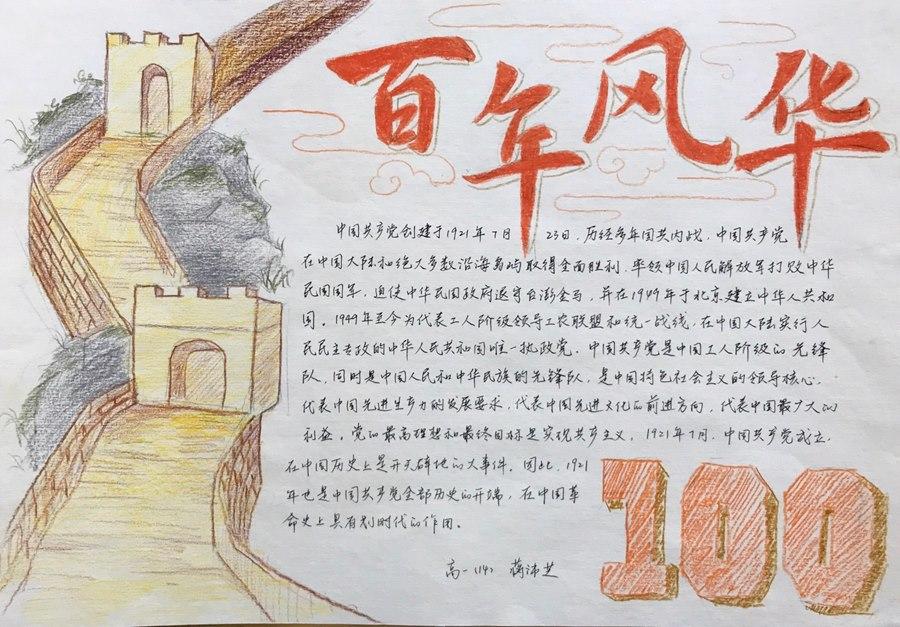 百年风华
中国共产党创建于1921年7月 23日,历经多年国共内战,中国共产党
在中国大陆和绝大多数沿海岛屿取得全面胜利,率领中国人民解放军打败中华
民国国军,迫使中华民国政府退守台澎金马,并在1949年于北京建立中华人共和
国。1949年至今为代表工人阶级领导工农联盟和统一战线,在中国大陆实行人
民民主专政的中华人民共和国唯一执政党。中国共产党是中国工人阶级的先锋
队,同时是中国人民和中华民族的先锋队,是中国特色社会主义的领导核心,
代表中国先进生产力的发展要求,代表中国先进文化的前进方向,代表中国最广大的
利益。党的最高理想和最终目标是实现共产主义。1921年7月,中国共产党成立,
在中国历史上是开天辟地的大事件。因此,1921
年也是中国共产党全部历史的开端,在中国革
命史上具有划时代的作用。
高一(14) 蒋沛芝
100